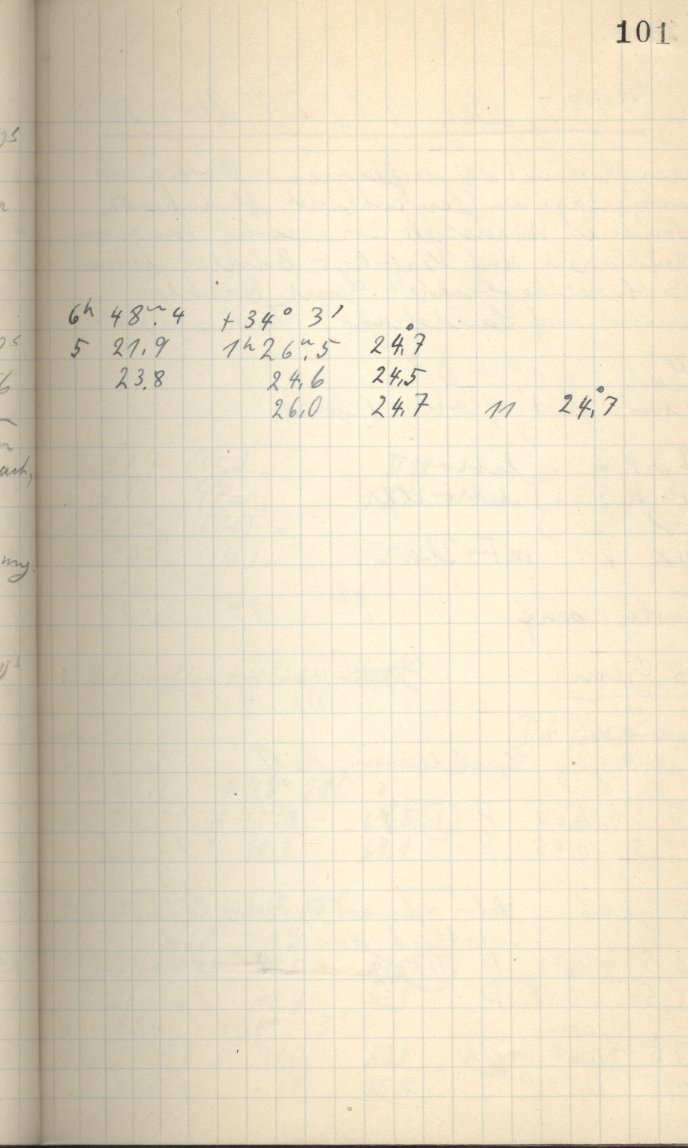 101
6h 48m.4 +34° 3'
5 21.9 1h 26m.5 24°.7
23.8 24.6 24.5
26.0 24.7 11 24°.7